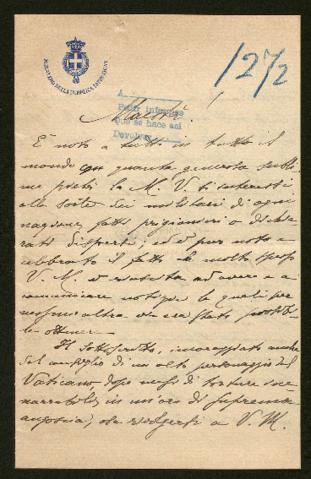 MINISTERO DELLA PUBBLICA ISTRUZIONE
1272
A
Petit
que se hace así
Maestà!
È noto a tutti in tutto il
mondo con quanta generosa subli-
me pietà la M. V. ti interessi
alla sorte dei militari di ogni
nazione fatti prigionieri o dichia-
rati dispersi; ed è pur noto e
celebrato il fatto che molto spesso
V. M. è riuscita ad avere e a
comunicare notizie le quali per
nessun'altra via era stato possibi-
le ottenere.
Il sottoscritto, incoraggiato anche
dal consiglio di un alto personaggio del
Vaticano, dopo mesi di torture ine-
narrabili, in un'ora di suprema
angoscia, osa rivolgersi a V. M.